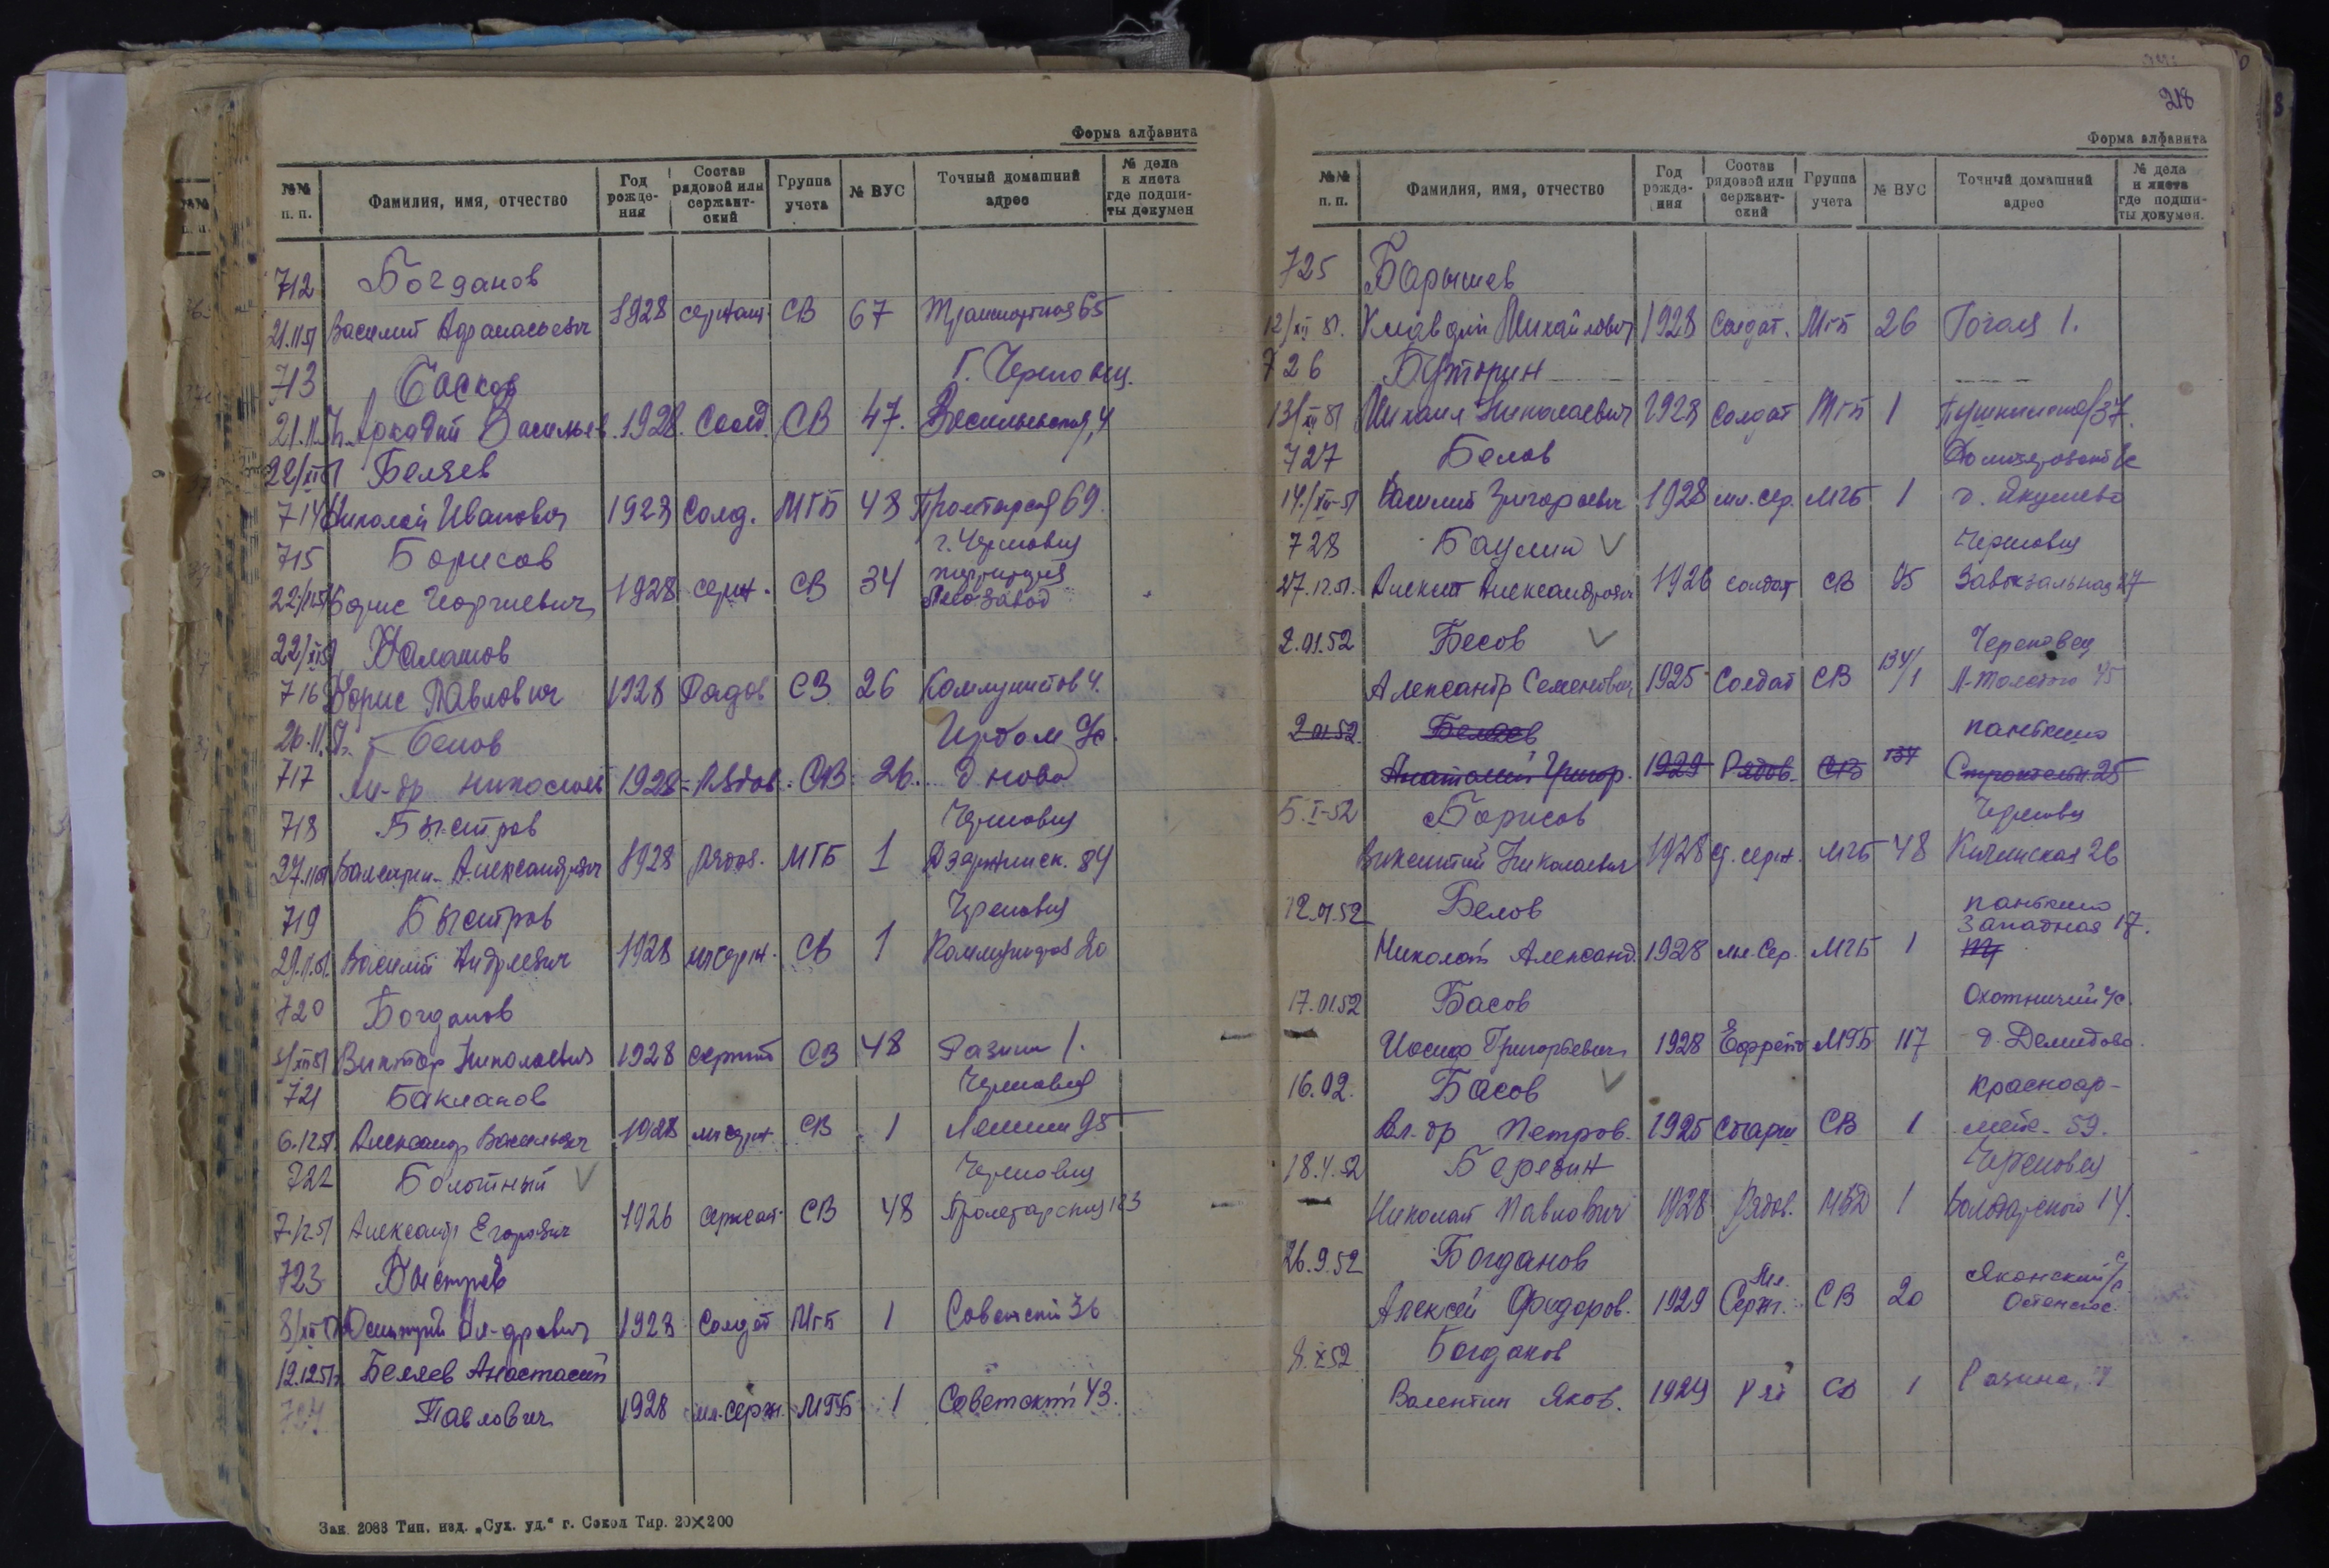 Форма алфавита
№№ п. п. Фамилия, имя, отчество Год рожде-ния Состав рядовой или сержант-ский Группа учета № ВУС Точный домашний адрес № дела и листа где подши-ты докумен
712 Богданов
21.11.51 Василий Афанасьевич 1928 сержант СВ 67 Транспортная 65
713 Басков Г. Череповец.
21.11.51 Аркадий Васильев. 1928. Солд. СВ 47. 4
22/XI 51 Беляев
714 Николай Иванович 1928 Солд. МГБ 48 69
715 Борисов г. Череповец
22/11.51 Борис Георгиевич 1928 серж. СВ 34 Лесозавод
22/XI 51 Балашов
716 Борис Павлович 1928 Рядов СВ 26 Коммунистов 4.
26.11.51 Белов Ирдом ж/с.
717 Ал-др Николаев 1928 Рядов. СВ. 26.
718 Быстров Череповец
27.11.51 Александрович 1928 рядов. МГБ 1 Дзержинск. 84
719 Быстров Череповец
29.11.51. Василий Андреевич 1928 мл серж. СВ 1 20
720 Богданов
Виктор Николаевич 1928 сержант СВ 48 Разина 1.
721 Бакланов Череповец
6.12.51. Александр Васильевич 1928 мл серж. СВ 1 Ленина 95
722 Болотный V Череповец
7.12.51 Александр Егорович 1926 сержант СВ 48 Пролетарская 123
723 Быстров
8/XII 51 Дмитрий Ал-дрович 1928 Солдат МГБ 1 Советский 36
12.12.51 г. Беляев Анастасий
724 Павлович 1928 мл-серж. МГБ 1 Советский 43.
Зак. 2088 Тип. изд. „Сух. уд.“ г. Сокол Тир. 20X200
218
Форма алфавита
№№ п. п. Фамилия, имя, отчество Год рожде-ния Состав рядовой или сержант-ский Группа учета № ВУС Точный домашний адрес № дела и листа где подши-ты докумен.
725 Барышев
12/XII 51. Клавдий Михайлович 1928 Солдат. МГБ 26 Гоголя 1.
726 Буторин
13/XII 51 Михаил Николаевич 1928 Солдат МГБ 1 37.
727 Белов
14/XII-51 Василий Григорьевич 1928 мл. сер. МГБ 1 д. Якушево
728 Баулин V Череповец
27.12.51. Алексей Александрович 1926 солдат СВ Завокзальная 27
2.01.52 Бесов V Череповец
Александр Семенович 1925 Солдат СВ 134/1 Л-Толстого 45
2.01.52. Беляев панькино
Анатолий Григор. 1929 Рядов. СВ 134 Строительн. 25
5.I-52 Борисов Череповец
Викентий Николаевич 1928 ст. серж. МГБ 48 26
12.01.52 Белов панькино
Западная 17.
Николай Александ. 1928 мл. Сер. МГБ 1
17.01.52 Басов Охотничий ч/с.
Иосиф Григорьевич 1928 Ефрейто МГБ 117 д. Демидово.
16.02. Басов V красноар-
Вл-др Петров. 1925 Старш СВ 1 мейс. 59.
18.4.52 Березин Череповец
Николай Павлович 1928 Рядов. МВД 1 14.
26.9.52 Богданов
Алексей Федоров. 1929 Мл. Серж. СВ 20
8.X 52 Богданов
Валентин Яков. 1929 Ряд СВ 1 Разина,